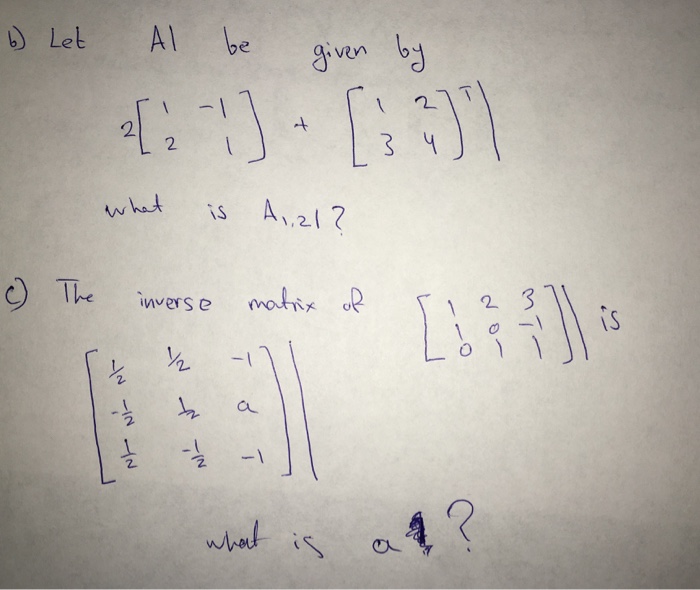 b) Let A| be given by
2[1 -1] + [1 2]ᵀ|
[2 1] [3 4]
what is A₁,₂|?
c) The inverse matrix of [1 2 3]| is
[1 0 -1]
[0 1 1]
[½ ½ -1]|
[-½ ½ a]
[½ -½ -1]
what is a ?